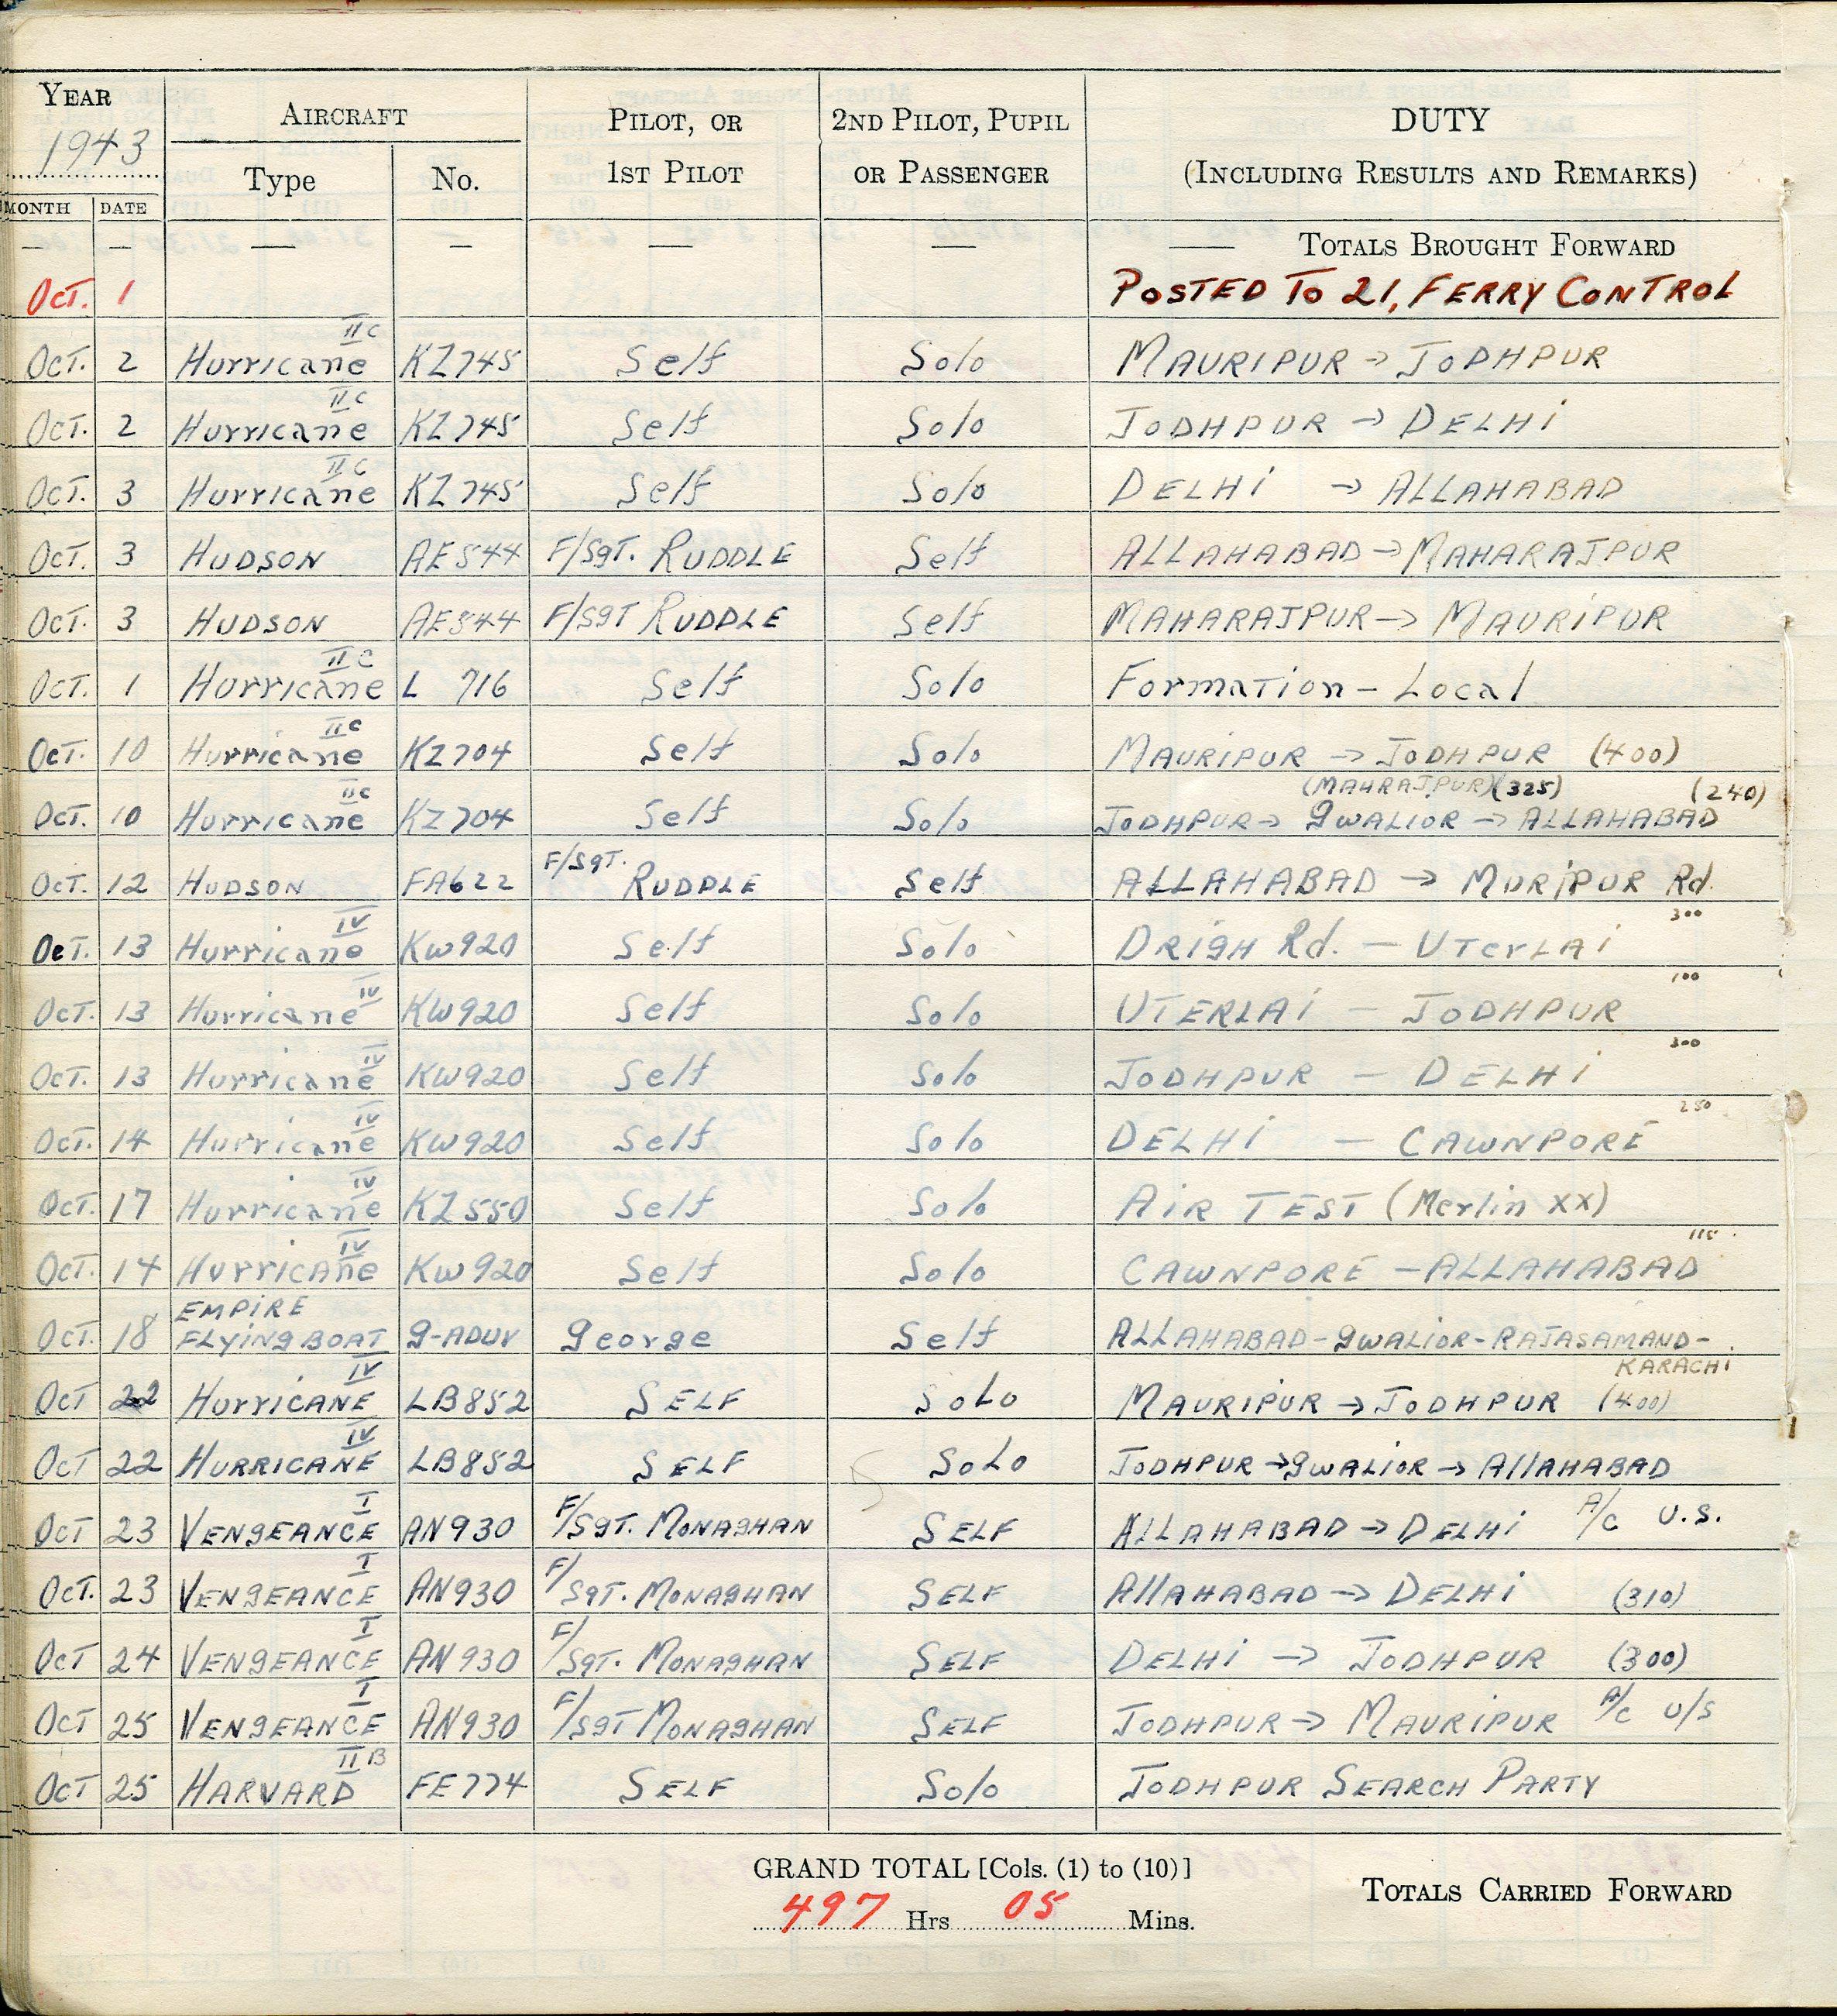 YEAR
1943
AIRCRAFT
PILOT, OR
1ST PILOT
2ND PILOT, PUPIL
OR PASSENGER
DUTY
(INCLUDING RESULTS AND REMARKS)
MONTH DATE Type No.
— — — — — — —— TOTALS BROUGHT FORWARD
OCT. 1 POSTED TO 21, FERRY CONTROL
OCT. 2 Hurricane IIC KZ745 Self Solo MAURIPUR → JODHPUR
OCT. 2 Hurricane IIC KZ745 Self Solo JODHPUR → DELHi
OCT. 3 Hurricane IIC KZ745 Self Solo DELHi → ALLAHABAD
OCT. 3 HUDSON AE544 F/SgT. RUDDLE Self ALLAHABAD → MAHARAJPUR
OCT. 3 HUDSON AE544 F/SgT RUDDLE Self MAHARAJPUR → MAURiPUR
OCT. 1 Hurricane IIC L 716 Self Solo Formation - Local
OCT. 10 Hurricane IIC KZ704 Self Solo MAURIPUR → JODHPUR (400)
(MAHRAJPUR)(325) (240)
OCT. 10 Hurricane IIC KZ704 Self Solo JODHPUR → gWALIOR → ALLAHABAD
OCT. 12 HUDSON FA622 F/SgT. RUDDLE Self ALLAHABAD → MURiPUR Rd.
OCT. 13 Hurricane IV KW920 Self Solo DRigH Rd. — UTerLAi 300
OCT. 13 Hurricane IV KW920 Self Solo UTERLAi — JODHPUR 100
OCT. 13 Hurricane IV KW920 Self Solo JODHPUR — DELHi 300
OCT. 14 Hurricane IV KW920 Self Solo DELHi — CAWNPORE 250
OCT. 17 Hurricane IV KZ550 Self Solo AiR TEST (Merlin XX)
OCT. 14 HurriCAne IV KW920 Self Solo CAWNPORE — ALLAHABAD 115
OCT. 18 EMPiRE FLYiNg BOAT g-ADUV george Self ALLAHABAD - gWALiOR - RAJASAMAND - KARACHi
OCT 22 HurriCANE IV LB852 SELF SOLO MAURIPUR → JODHPUR (400)
OCT 22 HURRICANE IV LB852 SELF SOLO JODHPUR → gWALiOR → AllAHABAD
OCT 23 VENgEANCE I AN930 F/SgT. MONAgHAN SELF ALLAHABAD → DELHi A/C U.S.
OCT. 23 VENgEANCE I AN930 F/SgT. MONAgHAN SELF AllAHABAD → DELHi (310)
OCT 24 VENgEANCE I AN930 F/SgT. MONAgHAN SELF DELHi → JODHPUR (300)
OCT 25 VENgEANCE I AN930 F/SgT MONAgHAN SELF JODHPUR → MAURiPUR A/C U/S
OCT 25 HARVARD IIB FE774 SELF Solo JODHPUR SEARCH PARTY
GRAND TOTAL [Cols. (1) to (10)]
497 Hrs 05 Mins.
TOTALS CARRIED FORWARD